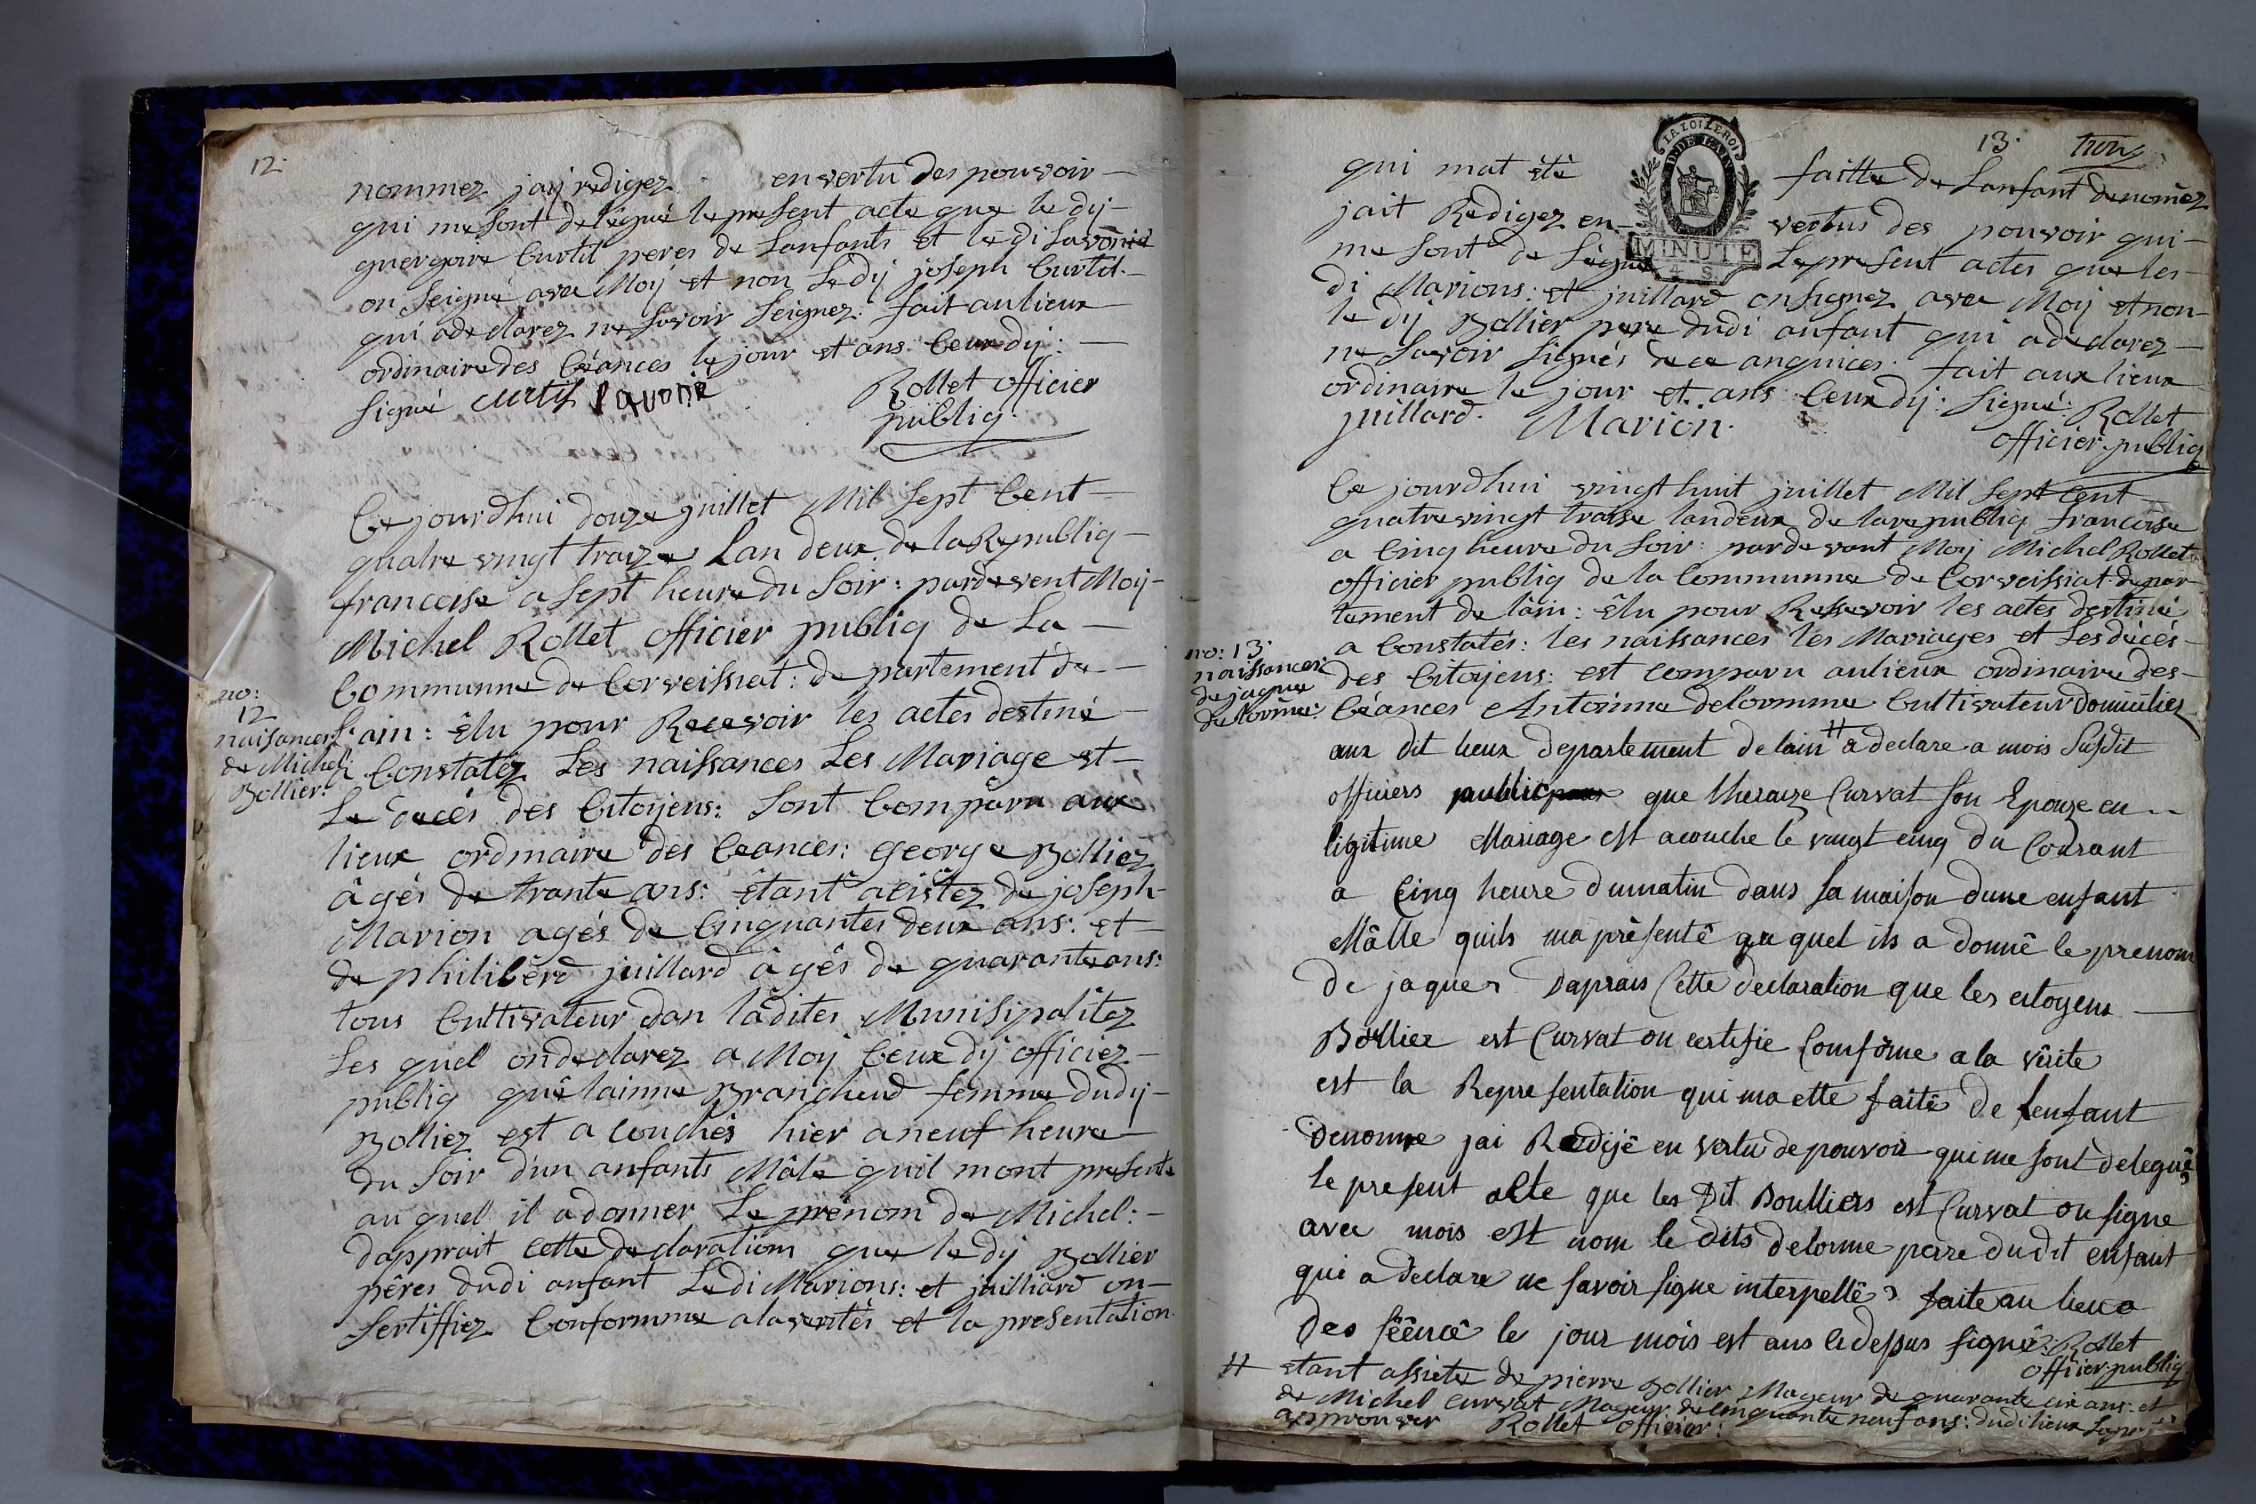 12.
nommez jay redigez en vertu des pouvoir
qui me sont delegué le present acte que le dy
guergoire Curtil peres de Lanfants et le di Lavoriē
on Seigné avec Moy et non Ledy joseph Curtil.
qui adeclarez ne Savoir Seignez: fait au lieux
ordinaire des Céances le jour et ans Ceux dy:
Signé curtil Lavorie Rollet officier
publiq.
Ce jourdhui douze juillet Mil Sept Cent
quatre vingt traize Lan deux de la Republiq
francoise a Sept heure du Soir: pardevent Moy
Michel Rollet officier publiq de La
Communne de Corveissiat: departement de
L'ain: êlu pour Recevoir les actes destiné
a Constatez Les naissances Les Mariage et
Le decés des Citoyens: Sont Comparu aux
lieux ordinaire des Ceances: george Bolliez
âgés de trante ans: êtant acistez de joseph
Marion agés de Cinquantes deux ans: et
de philibērd juillard âgés de quarante ans:
tous Cultivateur dan ladites Munisipalitez
Les quel on declarez a Moy Ceux dy officiez
publiq quê lainne Branchend femme dudy
Bolliez est a couchés hier a neuf heure
du Soir d'un anfants Mâle quil mont presente
au quel il a donner Le prénom de Michel:
dapprait cette declaration que le dy Bollier
pêres dudi anfant Ledi Marions: et juilliard on
Sertiffiez Conformme a la veritês et la presentation
no:
12
naisances
de Michel
Bollier:
13. trois
qui mat êtê faitte de Lanfant denomēz
jait Redigez en vertus des pouvoir qui
me sont de Légué Le present actes que les
di Marions: et juillard on Signez avec Moy et non
le dy Bollier pere dudi anfant qui adeclarez
ne Savoir Signés de ce anquices. fait aux lieux
ordinaire le jour et ans Ceux dy: Signé: Rollet
juillard. Marion. officier publiq
LA LOI LE ROI
MINUTE
4. S.
Ce jourdhui vingt huit juillet Mil Sept Cent
quatre vingt traise landeux de la republiq francoise
a Cinq heure du Soir: pardevant Moy Michel Rollet
officier publiq de la Communne de Corveissiat depar
tement de lâin: êlu pour Ressevoir les actes destiné
a Constatés: les naissances les Mariages et Les décés
des Citoyens: est comparu au lieux ordinaire des
Céances Antoinne delormme Cultivateur domicilies
aux dit lieux departement de lain # a declare a mois Susdit
officiers public que theraize Curvat Son Epouze en
ligitime Mariage est acouche le vingt cinq du Courant
a Cinq heure dumatin dans sa maison dune enfant
Mâlle quils ma prêsentê au quel ils a donnê le prenom
de jaques Daprais Cette declaration que les citoyens
Bollier est Curvat on certifie Comfôrme a la vêrite
est la Representation qui ma ette faitê de lenfant
denomme jai Redijê en vertu de pouvoir qui me sont deleguês
le present acte que les Dit Boulliers est Curvat on signe
avec mois est nom le dits delorme perre du dit enfant
qui a declare ne savoir signe interpellês faite au lieu
des sêêncê le jour mois est ans ci dessus signê: Rollet
officier publiq:
# etant assiete de pierre Bollier Mageur de quarante cin ans: et
de Michel curvat Mageur de cinquante neuf ans: dudi lieux
approuver Rollet officier:
no: 13.
naissances:
de jaque
delorme: